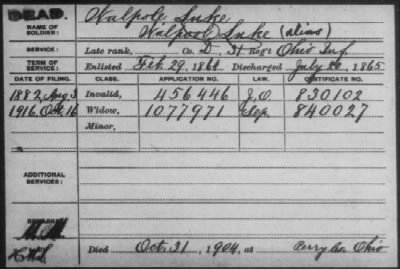 DEAD.
NAME OF SOLDIER: Walpole Luke
Walpool Luke (alias)
SERVICE: Late rank, Co. D, 31 Reg't Ohio Inf.
TERM OF SERVICE: Enlisted Feb. 29, 1864 Discharged July 20, 1865
DATE OF FILING. CLASS. APPLICATION NO. LAW. CERTIFICATE NO.
1882, Aug 3 Invalid, 456446 J.O. 830102
1916, Oct. 16 Widow, 1077971 Sep. 840027
Minor,
ADDITIONAL SERVICES:
REMARKS:
Died Oct. 21, 1904, at Perry Co. Ohio